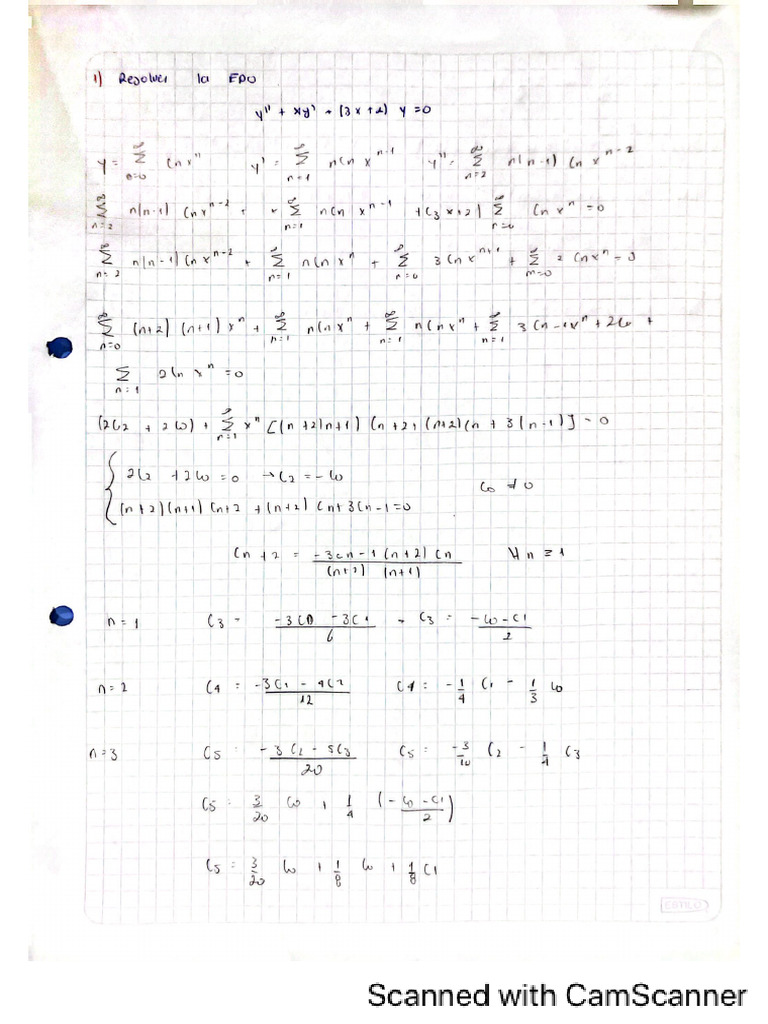 1) Resolver la EDO
y'' + xy' + (3x+2) y = 0
y = ∞ Σ n=0 Cn xⁿ   y' = ∞ Σ n=1 nCn xⁿ⁻¹   y'' = ∞ Σ n=2 n(n-1) Cn xⁿ⁻²
∞ Σ n=2 n(n-1) Cn xⁿ⁻² + x ∞ Σ n=1 nCn xⁿ⁻¹ + (3x+2) ∞ Σ n=0 Cn xⁿ = 0
∞ Σ n=2 n(n-1) Cn xⁿ⁻² + ∞ Σ n=1 nCn xⁿ + ∞ Σ n=0 3Cn xⁿ⁺¹ + ∞ Σ n=0 2Cn xⁿ = 0
∞ Σ n=0 (n+2) (n+1) xⁿ + ∞ Σ n=1 nCn xⁿ + ∞ Σ n=1 nCn xⁿ + ∞ Σ n=1 3Cn-1xⁿ + 2C0 +
Σ n=1 2Cn xⁿ = 0
(2C2 + 2C0) + ∞ Σ n=1 xⁿ [(n+2)n+1) Cn+2 + (n+2)Cn + 3Cn-1)] = 0
2C2 + 2C0 = 0 → C2 = -C0   C0 ≠ 0
(n+2)(n+1) Cn+2 + (n+2) Cn + 3Cn-1 = 0
Cn+2 = -3Cn-1 (n+2) Cn / (n+2) (n+1)   ∀n ≥ 1
n=1   C3 = -3C0 -3C1 / 6   C3 = -C0 - C1 / 2
n=2   C4 = -3C1 - 4C2 / 12   C4 = -1/4 C1 - 1/3 C0
n=3   C5 = -3C2 - 5C3 / 20   C5 = -3/20 C2 - 1/4 C3
C5 = 3/20 C0 + 1/4 (-C0 - C1 / 2)
C5 = 3/20 C0 + 1/8 C0 + 1/8 C1
ESTILO
Scanned with CamScanner